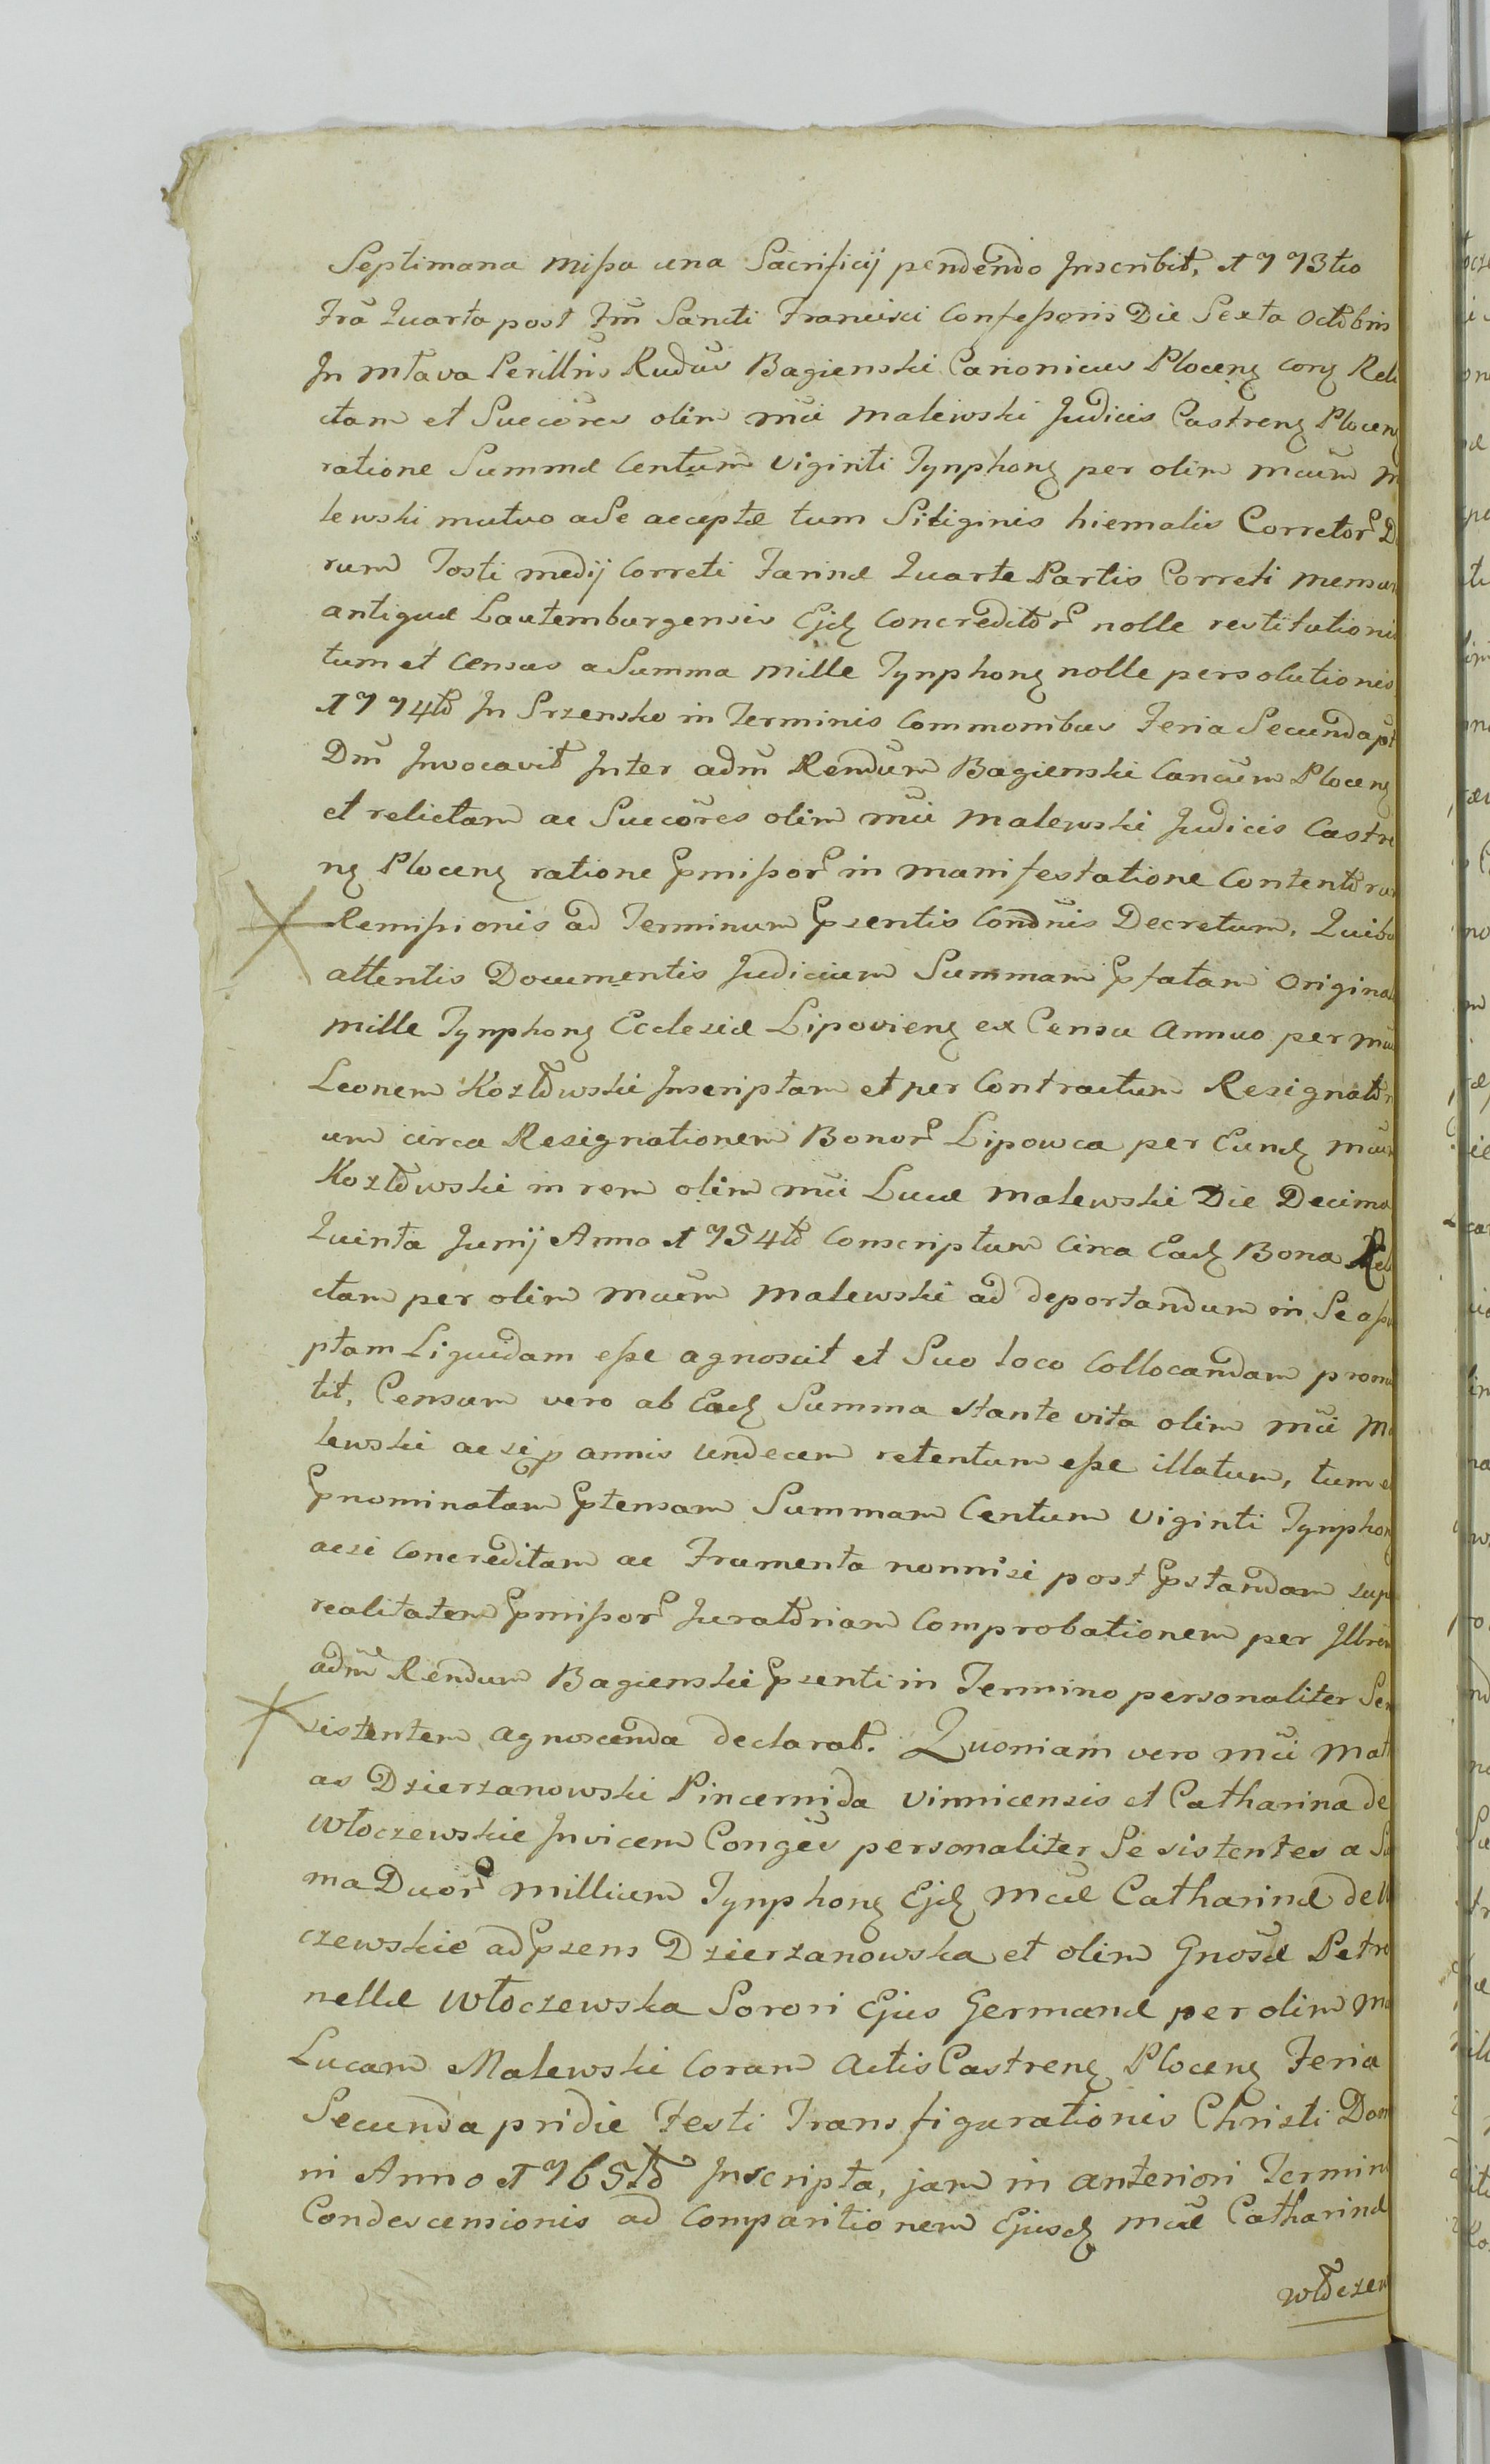 Septimana mißa una Sacrificij pendendo Inscribit, 1773tio
Fra Quarta post Fm̃ Sancti Francisci Confeßoris Die Sexta Octobris
In Mława Perillris Rndus Bagienski Canonicus Plocenẹ conẹ Reli
ctam et Succõres olim mci Malewski Judicis Castrenẹ Plocenẹ
ratione Summæ Centum Viginti Tynphonẹ per olim mcum M
lewski mutuo a Se acceptæ tum Siliginis hiemalis Corretor D
rum Tosti medij Correti Farinæ Quarte Partis Correti mensur
antiquæ Lautemburgensis Ejdẹ Concreditor nolle restitutionis
tum et Census a Summa Mille Tynphonẹ nolle persolutionis
1774to In Srzensko in Terminis Commonibus Feria Secunda pt
Dm̃ Invocavit Inter adm̃ Rendum Bagienski Cancum Plocenẹ
et relictam ac Succõres olim mci Malewski Judicis Castre
nẹ Plocenẹ ratione pmißor in manifestatione Contentoru
Remißionis ad Terminum pzentis Condnis Decretum, Quibu
attentis Documentis Judicium Summam pfatam Original
Mille Tynphonẹ Ecclesiæ Lipovienẹ ex Censu Annuo per Mcu
Leonem Kozłowski Inscriptam et per Contractum Resignator
um circa Resignationem Bonor Lipowca per Eundẹ mcum
Kozłowski in rem olim mci Lucæ Malewski Die Decima
Quinta Junij Anno 1754to Conscriptum Circa Eadẹ Bona Reli
ctam per olim mcum Malewski ad deportandum in Se aßu
ptam Liquidam eße agnoscit et Suo loco Collocandam promi
tit, Censum vero ab Eadẹ Summa stante vita olim mci Ma
lewski ac si p annis Undecem retentum eße illatum, tum e
pnominatam ptensam Summam Centum Viginti Tynphonẹ
ac si Concreditam ac Frumenta nonnisi post pstandam sup
realitatem pmißor Juratoriam Comprobationem per Illrem
adm̃ Rendum Bagienski pzenti in Termino personaliter Se
sistentem agnoscenda declarat. Quoniam vero mci Mat
as Dzierzanowski Pincernida Vinnicensis et Catharina de
Włoczewskie Invicem Conges personaliter Se sistentes a Su
ma Duor Millium Tynphonẹ Ejdẹ Mcæ Catharinæ de W
czewskie ad pzens Dzierzanowska et olim Gnosæ Petro
nellæ Włoczewska Sorori Ejus Germanæ per olim Mc
Lucam Malewski Coram Actis Castrenẹ Plocenẹ Feria
Secunda pridie Festi Transfigurationis Christi Dom
ni Anno 1765to Inscripta, jam in anteriori Termin
Condescensionis ad Comparitionem Ejusdẹ Mcæ Catharinæ
Włoczew